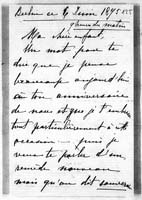 Berlin ce 9 Juin 1895
9 heures du matin
Ma chère enfant,
Un mot pour te
dire que je pense
beaucoup aujourd'hui
à ton anniversaire
de naissance et que je t'embrasse
tout particulièrement à cette
occasion — puis je
veux te parler d'un
remède nouveau
mais qu'on dit souverain